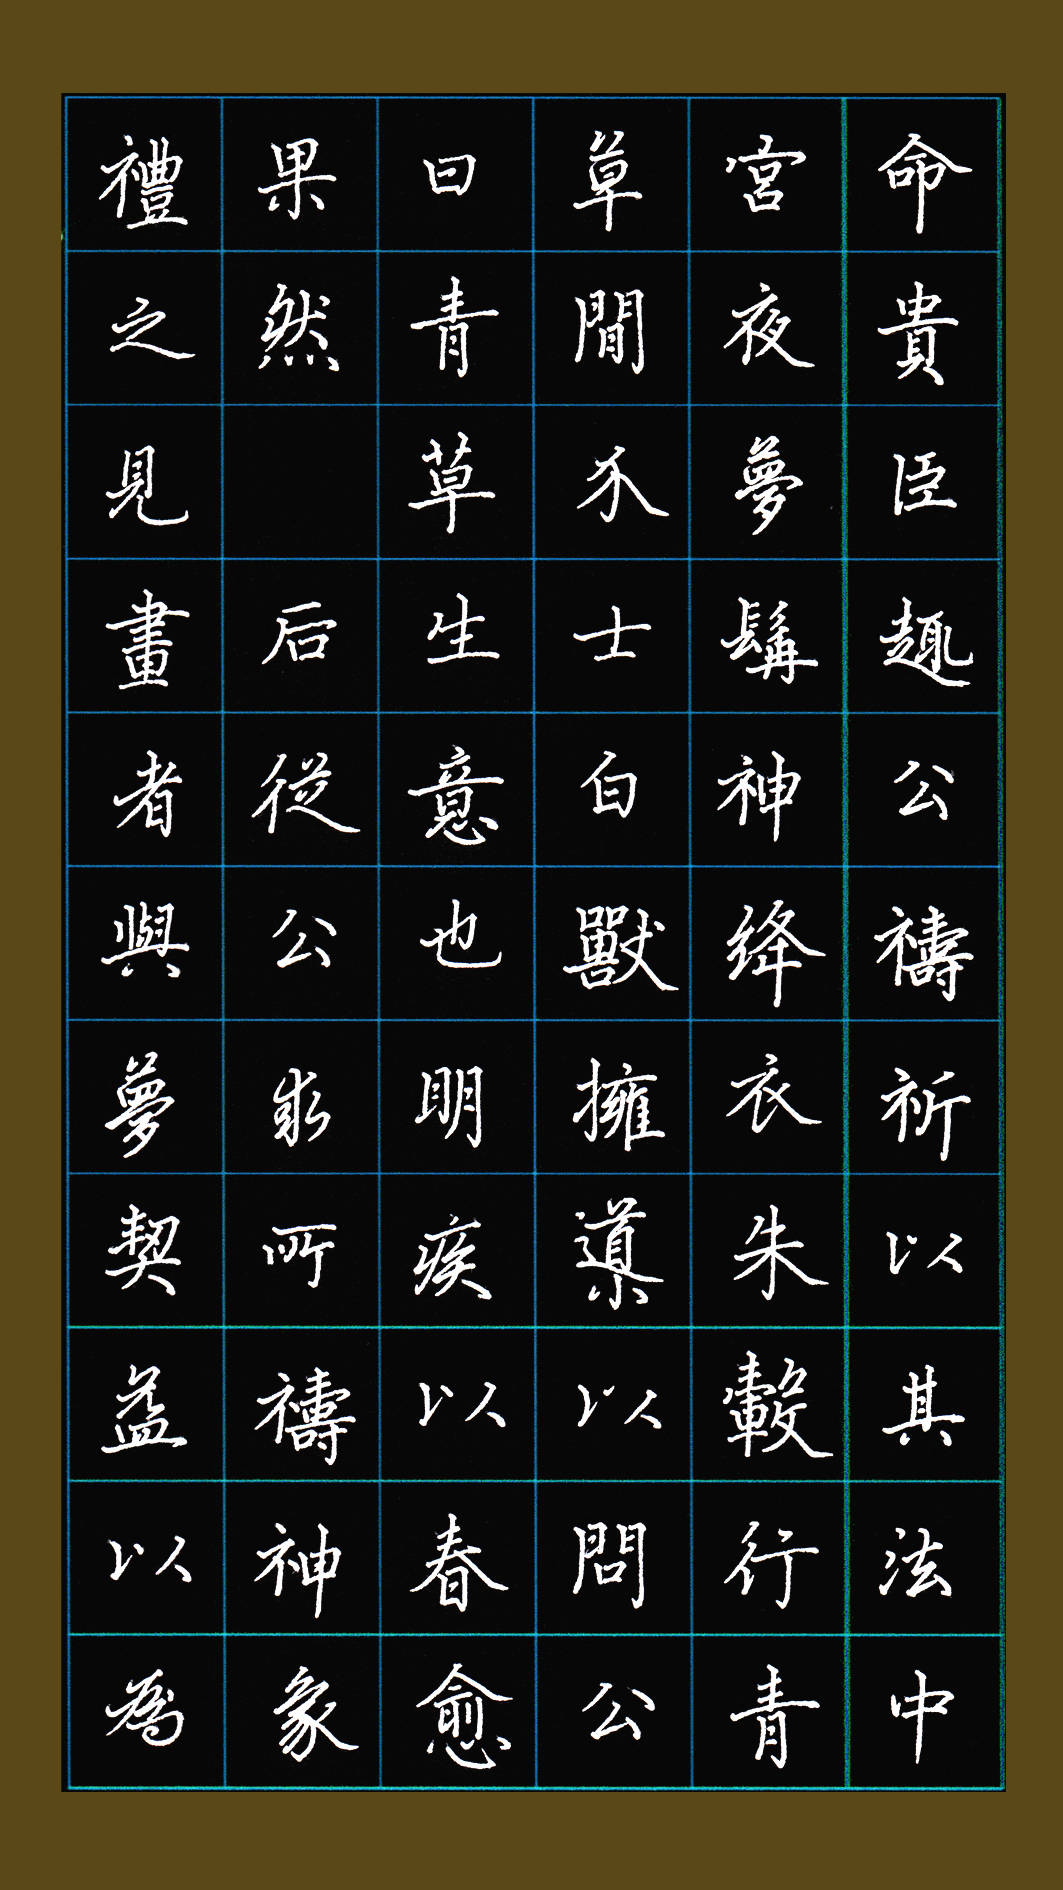 命貴臣趣公禱祈以其法中
宮夜夢髯神絳衣朱轂行青
草間介士白獸擁導以問公
曰青草生意也明疾以春愈
果然 后從公求所禱神象
禮之見畫者與夢契益以為